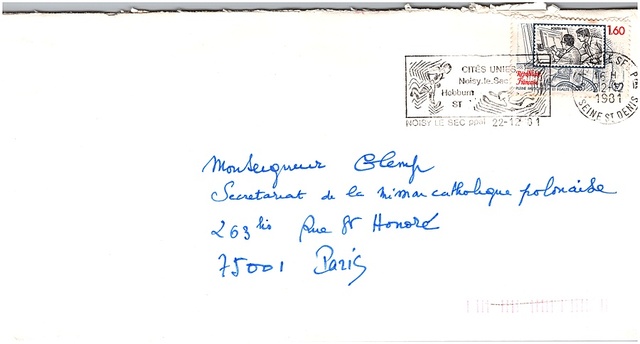 1.60
CITÉS UNIES
Noisy.le.Sec
Hebburn
ST
République
Française
NOISY LE SEC ppal 22-12 81
1981
SEINE ST DENIS
Monseigneur Glemp
Secretariat de la mission catholique polonaise
263 bis Rue St Honoré
75001 Paris